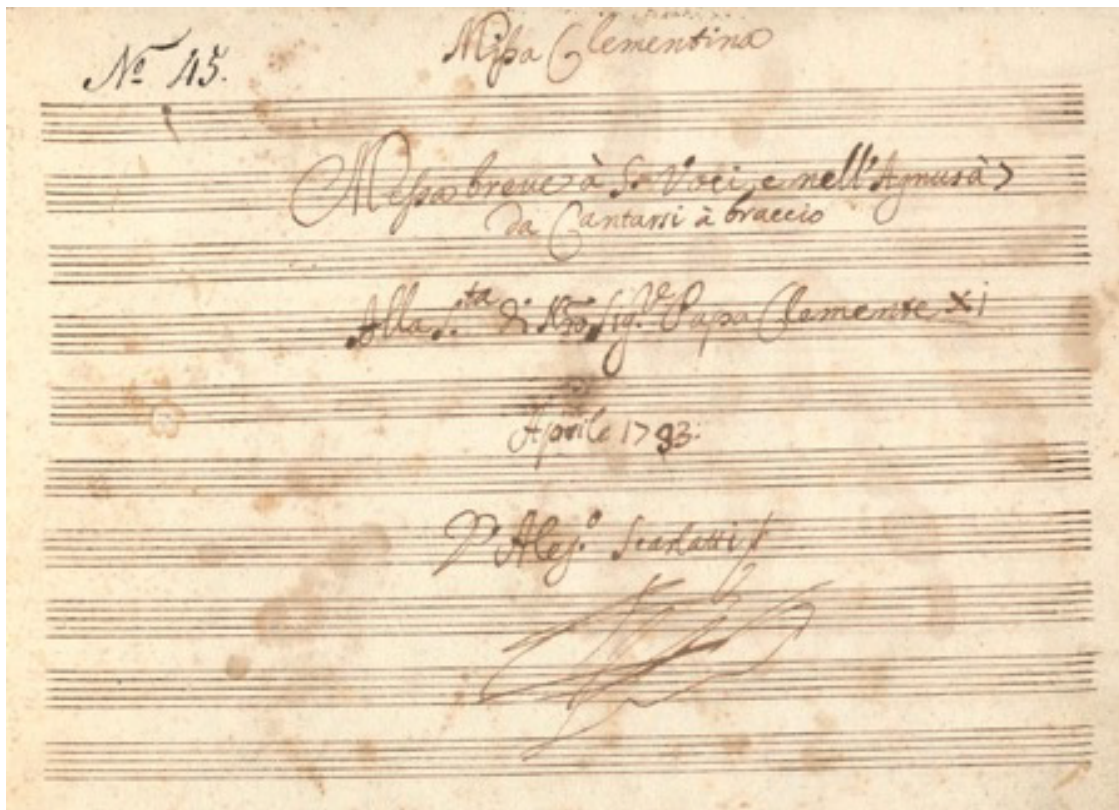 Missa Clementina
Nº 45.
Messa breve à 5. Voci, e nell'Agnus à 7
da Cantarsi à braccio
Alla S.ta di Nro Sig.re Papa Clemente XI
Aprile 1703.
D'Aless.o Scarlatti